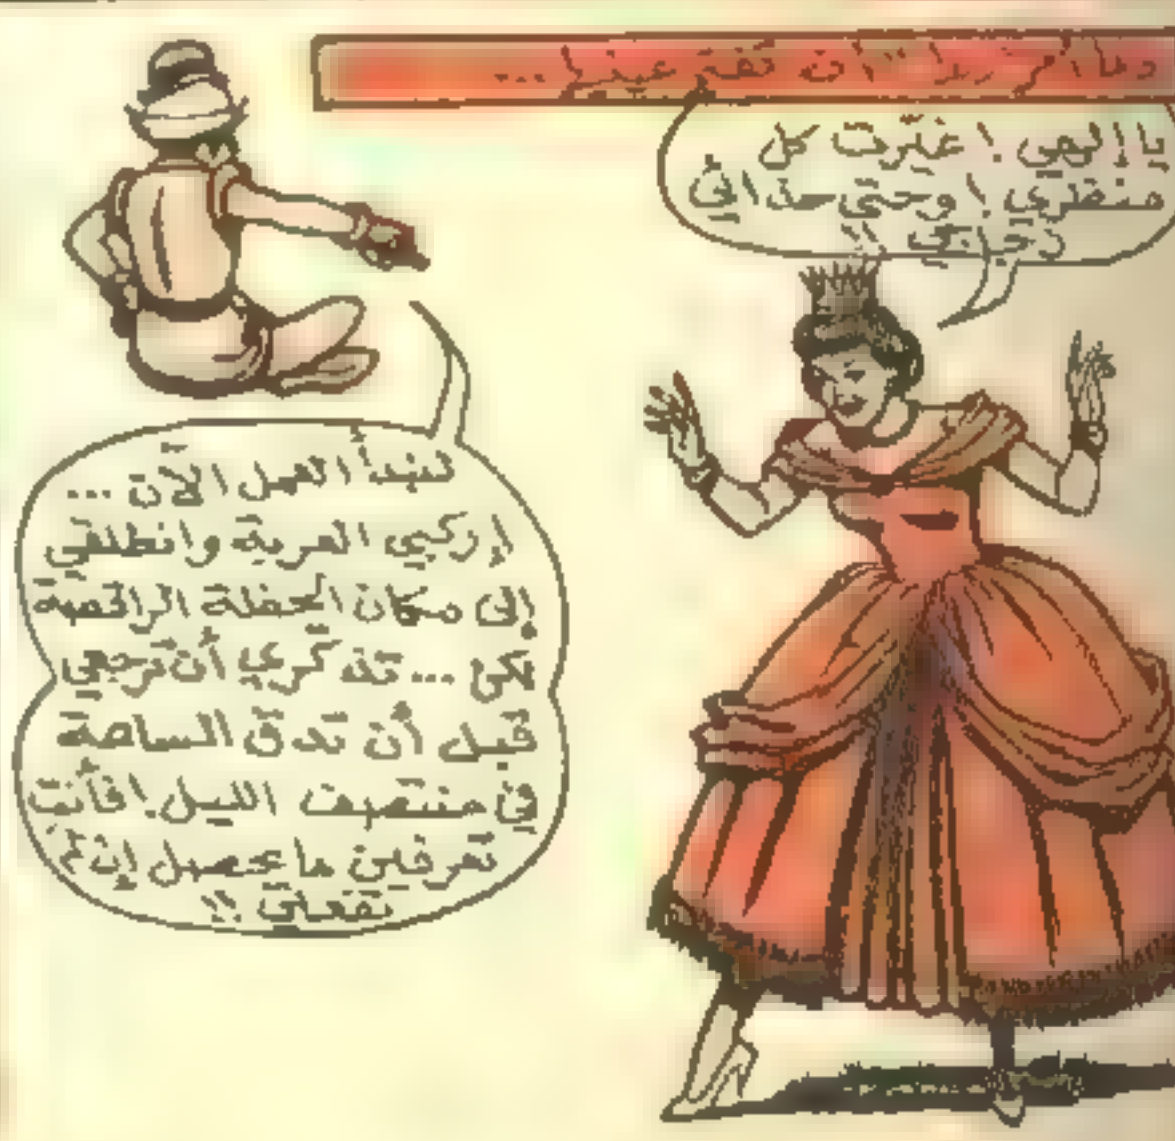 ... أن عينيها ...
يا إلهي ! غيّرت كل
منظري ! وحتى حذائي
زجاجي !!
لنبدأ العمل الآن ...
إركبي العربة وانطلقي
إلى مكان الحفلة الراقصة
لكن ... تذكري أن ترجعي
قبل أن تدق الساعة
في منتصف الليل ! فأنتِ
تعرفين ما يحصل إن لم
تفعلي !!